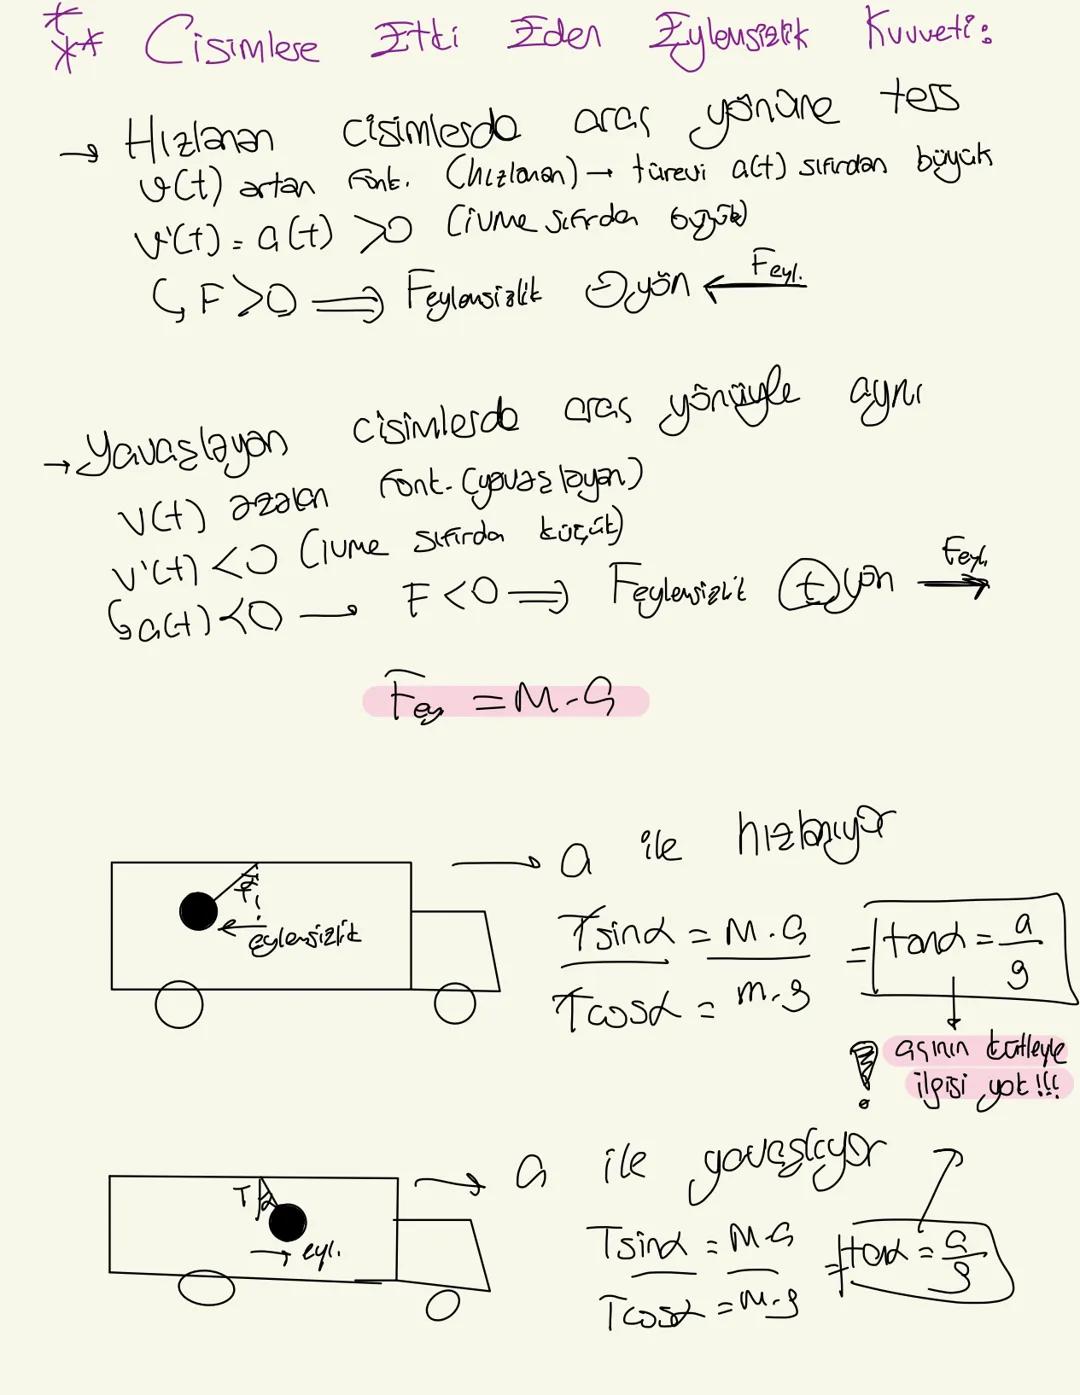 *** Cisimlere Etki Eden Eylemsizlik Kuvveti:
→ Hızlanan cisimlerde araç yönüne ters
v(t) artan font. (hızlanan) → türevi a(t) sıfırdan büyük
v'(t) = a(t) >0 (ivme sıfırda büyük)
↳ F>0 ⟹ Feylemsizlik ⊖ yön ← Feyl.
→ Yavaşlayan cisimlerde araç yönüyle aynı
v(t) azalan font. (yavaşlayan)
v'(t) <0 (ivme sıfırda küçük)
↳ a(t) <0 → F<0 ⟹ Feylemsizlik ⊕ yön Feyl. →
Fey = m.a
→ a ile hızlanıyor
T α
← eylemsizlik
Tsinα = m.a
Tcosα = m.g
= tanα = a/g
! açının kütleyle
ilgisi yok!!!
→ a ile yavaşlıyor
T α
→ eyl.
Tsinα = m.a
Tcosα = m.g
= tanα = a/g